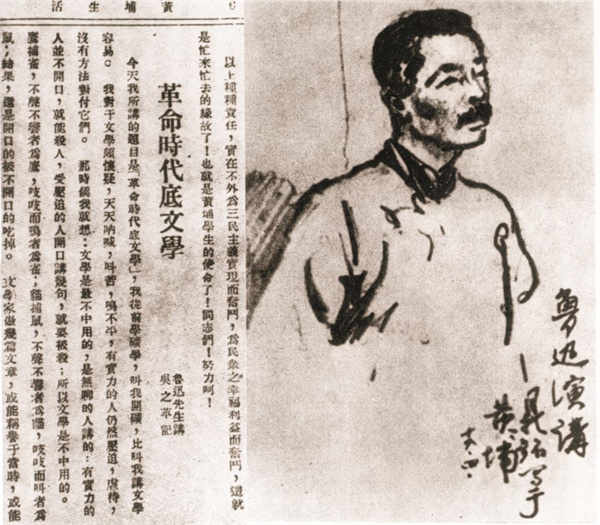 6 黃埔生活
以上種種責任，實在不外為三民主義實現而奮鬥，為民衆之幸福利益而奮鬥，這就
是忙來忙去的緣故了！也就是黃埔學生的使命了！同志們！努力呵！
革命時代底文學
魯迅先生講
吳之苹記
今天我所講的題目是「革命時代底文學」，我從前學礦學，叫我開礦，比叫我講文學
容易。我對于文學頗懷疑，天天吶喊，叫苦，鳴不平，有實力的人仍然壓迫，虐待，
沒有方法對付它們。那時候我就想：文學是最不中用的，是無聊的人講的：有實力的
人並不開口，就能殺人，受壓迫的人開口講幾句，就要被殺；所以文學是不中用的。
鷹捕雀，不聲不響者為鷹，吱吱而鳴者為雀；貓捕鼠，不聲不響者為貓，吱吱而叫者為
鼠；結果，還是開口的被不開口的吃掉。文學家做幾篇文章，或能稱譽于當時，或能
魯迅演講
黃埔